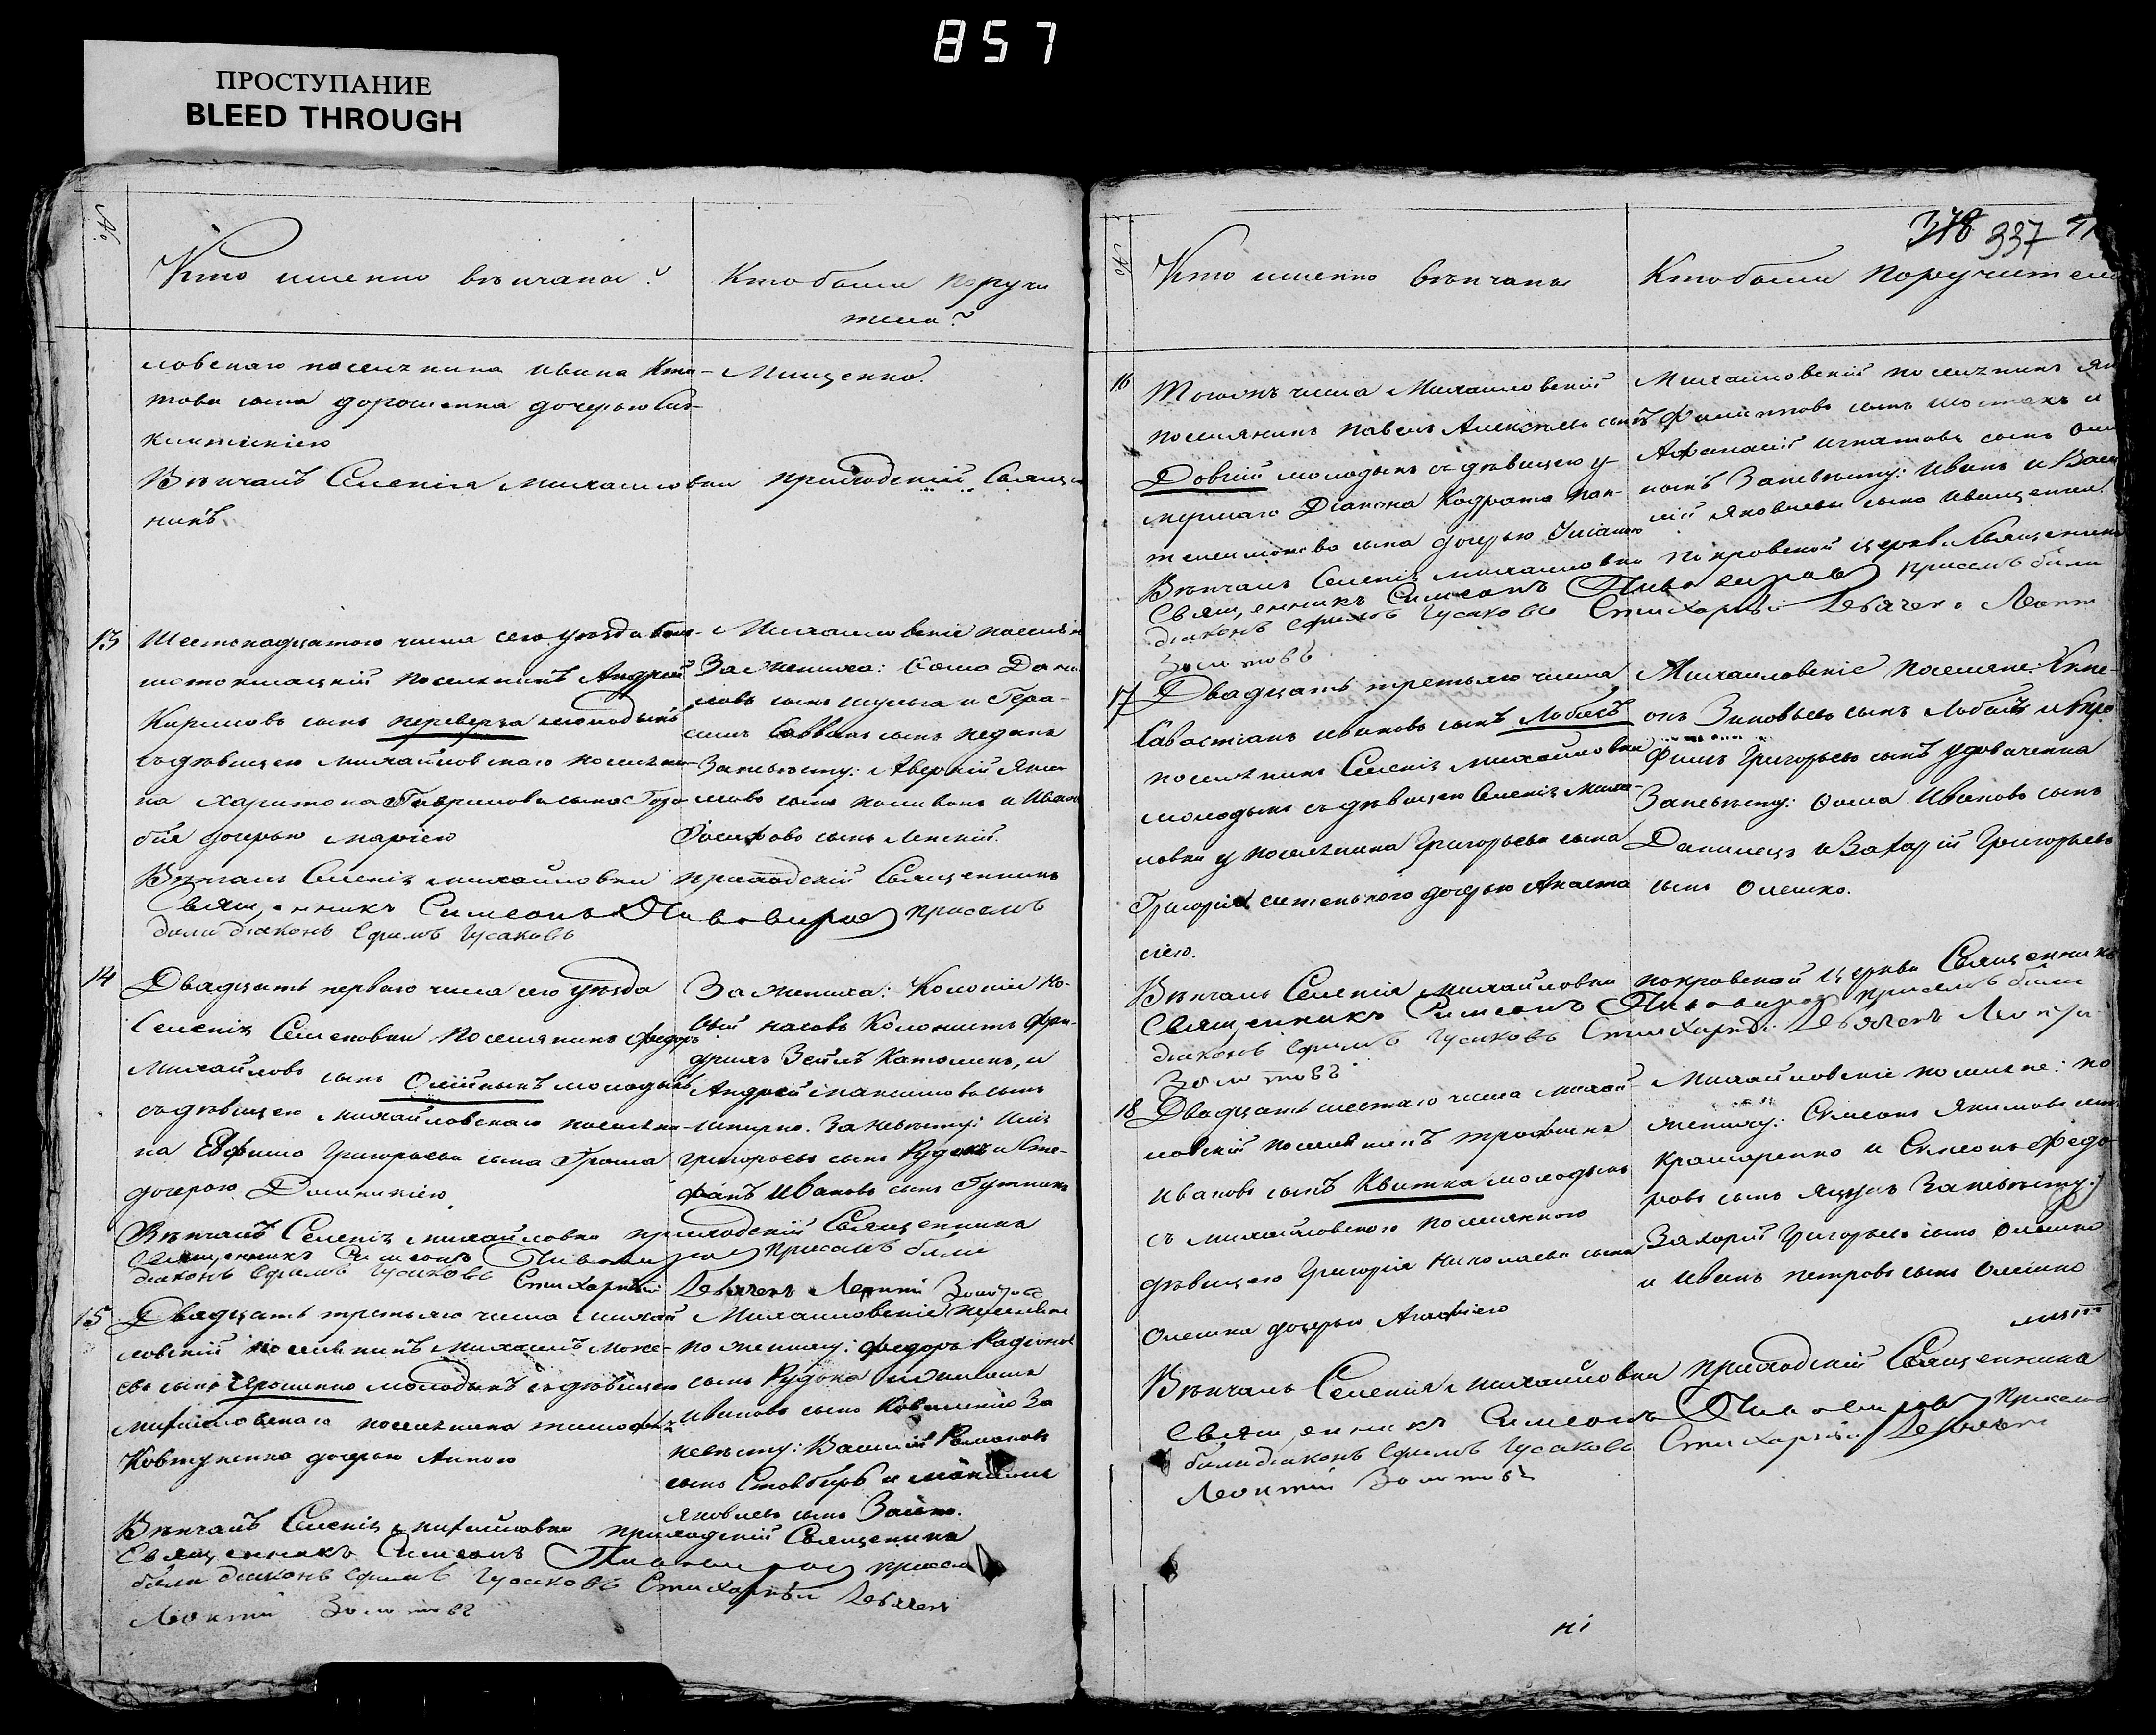 857
ПРОСТУПАНИЕ
BLEED THROUGH
№
Кто именно вѣнчаны?
Кто были поручи
тели?
ловскаго поселянина Ивана
това сына дорошенка дочерью
Мищенко.
Вѣнчалъ Селенія Михайловки приходскій Священ
никъ
13
Шестонадцатого числа сего уѣзда
токмацкій поселянинъ Андрей
Кириловъ сынъ переверза молодыкъ
съ дѣвицею михайловскаго поселяни
на харитона Гаврилова сына
бія дочерью маріею
Михайловскіе поселяне
За жениха: Сава Дани
ловъ сынъ шульга и Гера-
симъ Саввинъ сынъ
За невѣсту: Аверкій Яким
овъ сынъ поливонъ и Иванъ
Іосифовъ сынъ Ленскій.
Вѣнчалъ Селенія михайловки приходскій Священникъ
Священникъ Симеонъ Пивоваровъ присемъ
были діаконъ Ефимъ Гусаковъ
14
Двадцать перваго числа сего уѣзда
Селенія Семеновки поселянинъ Федоръ
Михайловъ сынъ Олійныкъ молодыкъ
съ дѣвицею михайловскаго поселяни-
на Евфима Григорьева сына Грома
дочерью Домникіею
За жениха: Колоніи Но-
вый колонистъ Фри-
дрихъ Зейлъ Католикъ, и
Андрей максимовъ сынъ
шпирко. За невѣсту:
григорьевъ сынъ Рудокъ и Сте-
фанъ Ивановъ сынъ Гутникъ
Вѣнчалъ Селенія михайловки приходскій Священникъ
Священникъ Симеонъ Пивоваровъ присемъ были
діаконъ Ефимъ Гусаковъ Стихарный Дебячен Леонтій Золотовъ
15
Двадцать третьяго числа михай
ловскій поселянинъ михаилъ Моисе-
евъ сынъ Ярошенко молодыкъ съ дѣвицею
михайловскаго поселянина тимофея
Ковтуненка дочерью Анною
Михайловскіе поселяне
по жениху: Федоръ Радіонов
сынъ Рудока и
Ивановъ сынъ За
невѣсту: Василій Романовъ
сынъ Стовбиръ и максимъ
яковлевъ сынъ Заика.
Вѣнчалъ Селенія михайловки приходскій Священника
Священникъ Симеонъ Пивоваровъ присем
были діаконъ Ефимъ Гусаковъ Стихарный Дебячен
Леонтій Золотовъ
№
Кто именно вѣнчаны
Кто были поручители
318 337
16
Тогожъ числа Михайловскій
поселянинъ павелъ Алексѣевъ сынъ
Довгій молодыкъ съ дѣвицею у-
мершаго Діакона Кодрата пан-
телеимонова сына дочерью Уліаною
Михайловскій поселянинъ
Филиповъ сынъ шостакъ и
Афанасій игнатовъ сынъ
За невѣсту: Иванъ и Васи
лій Яковлевы сыны Иващенки.
Вѣнчалъ Селенія михайловки покровской церкви Священникъ
Священникъ Симеонъ Пивоваровъ присемъ были
діаконъ Ефимъ Гусаковъ Стихарный Дебячено Леонт
Золотовъ
17
Двадцать третьяго числа
Савастіанъ Ивановъ сынъ Лобасъ
поселянинъ Селенія Михайловки
молодыкъ съ дѣвицею Селенія Михай-
ловки у поселянина Григорьева сына
Григорія ситенького дочерью Анаста
сіею.
Михайловскіе поселяне:
онъ Зиновьевъ сынъ Лобасъ и
фимъ Григорьевъ сынъ удовиченко
За невѣсту: Фома Ивановъ сынъ
Данилецъ и Захарій Григорьевъ
сынъ Олешко.
Вѣнчалъ Селенія михайловки покровской Церкви Священникъ
Священникъ Симеонъ Пивоваровъ присемъ были
діаконъ Ефимъ Гусаковъ Стихарный Дебячен Леонтій
Золотовъ
18
Двадцать шестаго числа михай
ловскій поселянинъ трофимъ
Ивановъ сынъ Квитка молодыкъ
съ михайловского поселянного
дѣвицею Григорія Николаева сына
Олешка дочерью Агафіею
Михайловскіе поселяне: по
жениху: Симеонъ Якимовъ сынъ
крамаренко и Симеонъ Федо-
ровъ сынъ яцунъ За невѣсту:
Захарій Григорьевъ сынъ Олешко
и Иванъ петровъ сынъ Олешко
Вѣнчалъ Селенія михайловки приходскій Священника
Священникъ Симеонъ Пивоваровъ присемъ
были діаконъ Ефимъ Гусаковъ Стихарный Дебячен
Леонтій Золотовъ